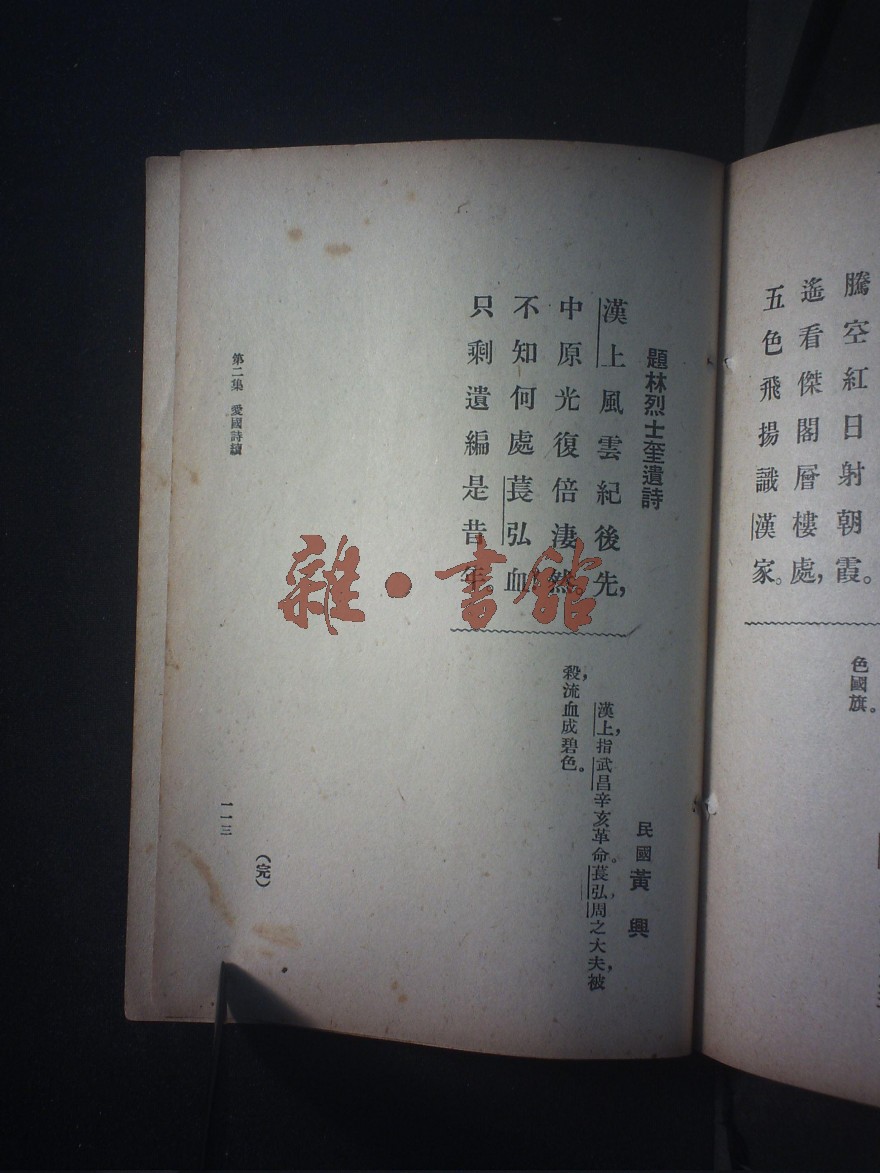 騰空紅日射朝霞。
遙看傑閣層樓處，
五色飛揚識漢家。
色國旗。
題林烈士奎遺詩
民國 黃興
漢上風雲紀後先，
中原光復倍淒然。
不知何處萇弘血
只剩遺編是昔年。
漢上，指武昌辛亥革命。萇弘，周之大夫，被
殺，流血成碧色。
(完)
第二集 愛國詩續
一一三
雜·書館